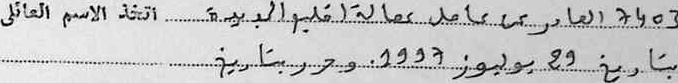 7403 الصادر عن عامل عمالة إقليم الجديدة ........ اتخذ الاسم العائلي
بتاريخ 29 يوليوز 1997. وحرر بتاريخ ........